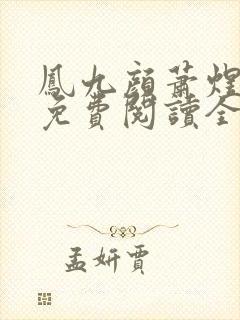 鳳九顔蕭煌
免費閱讀全
孟妍賈